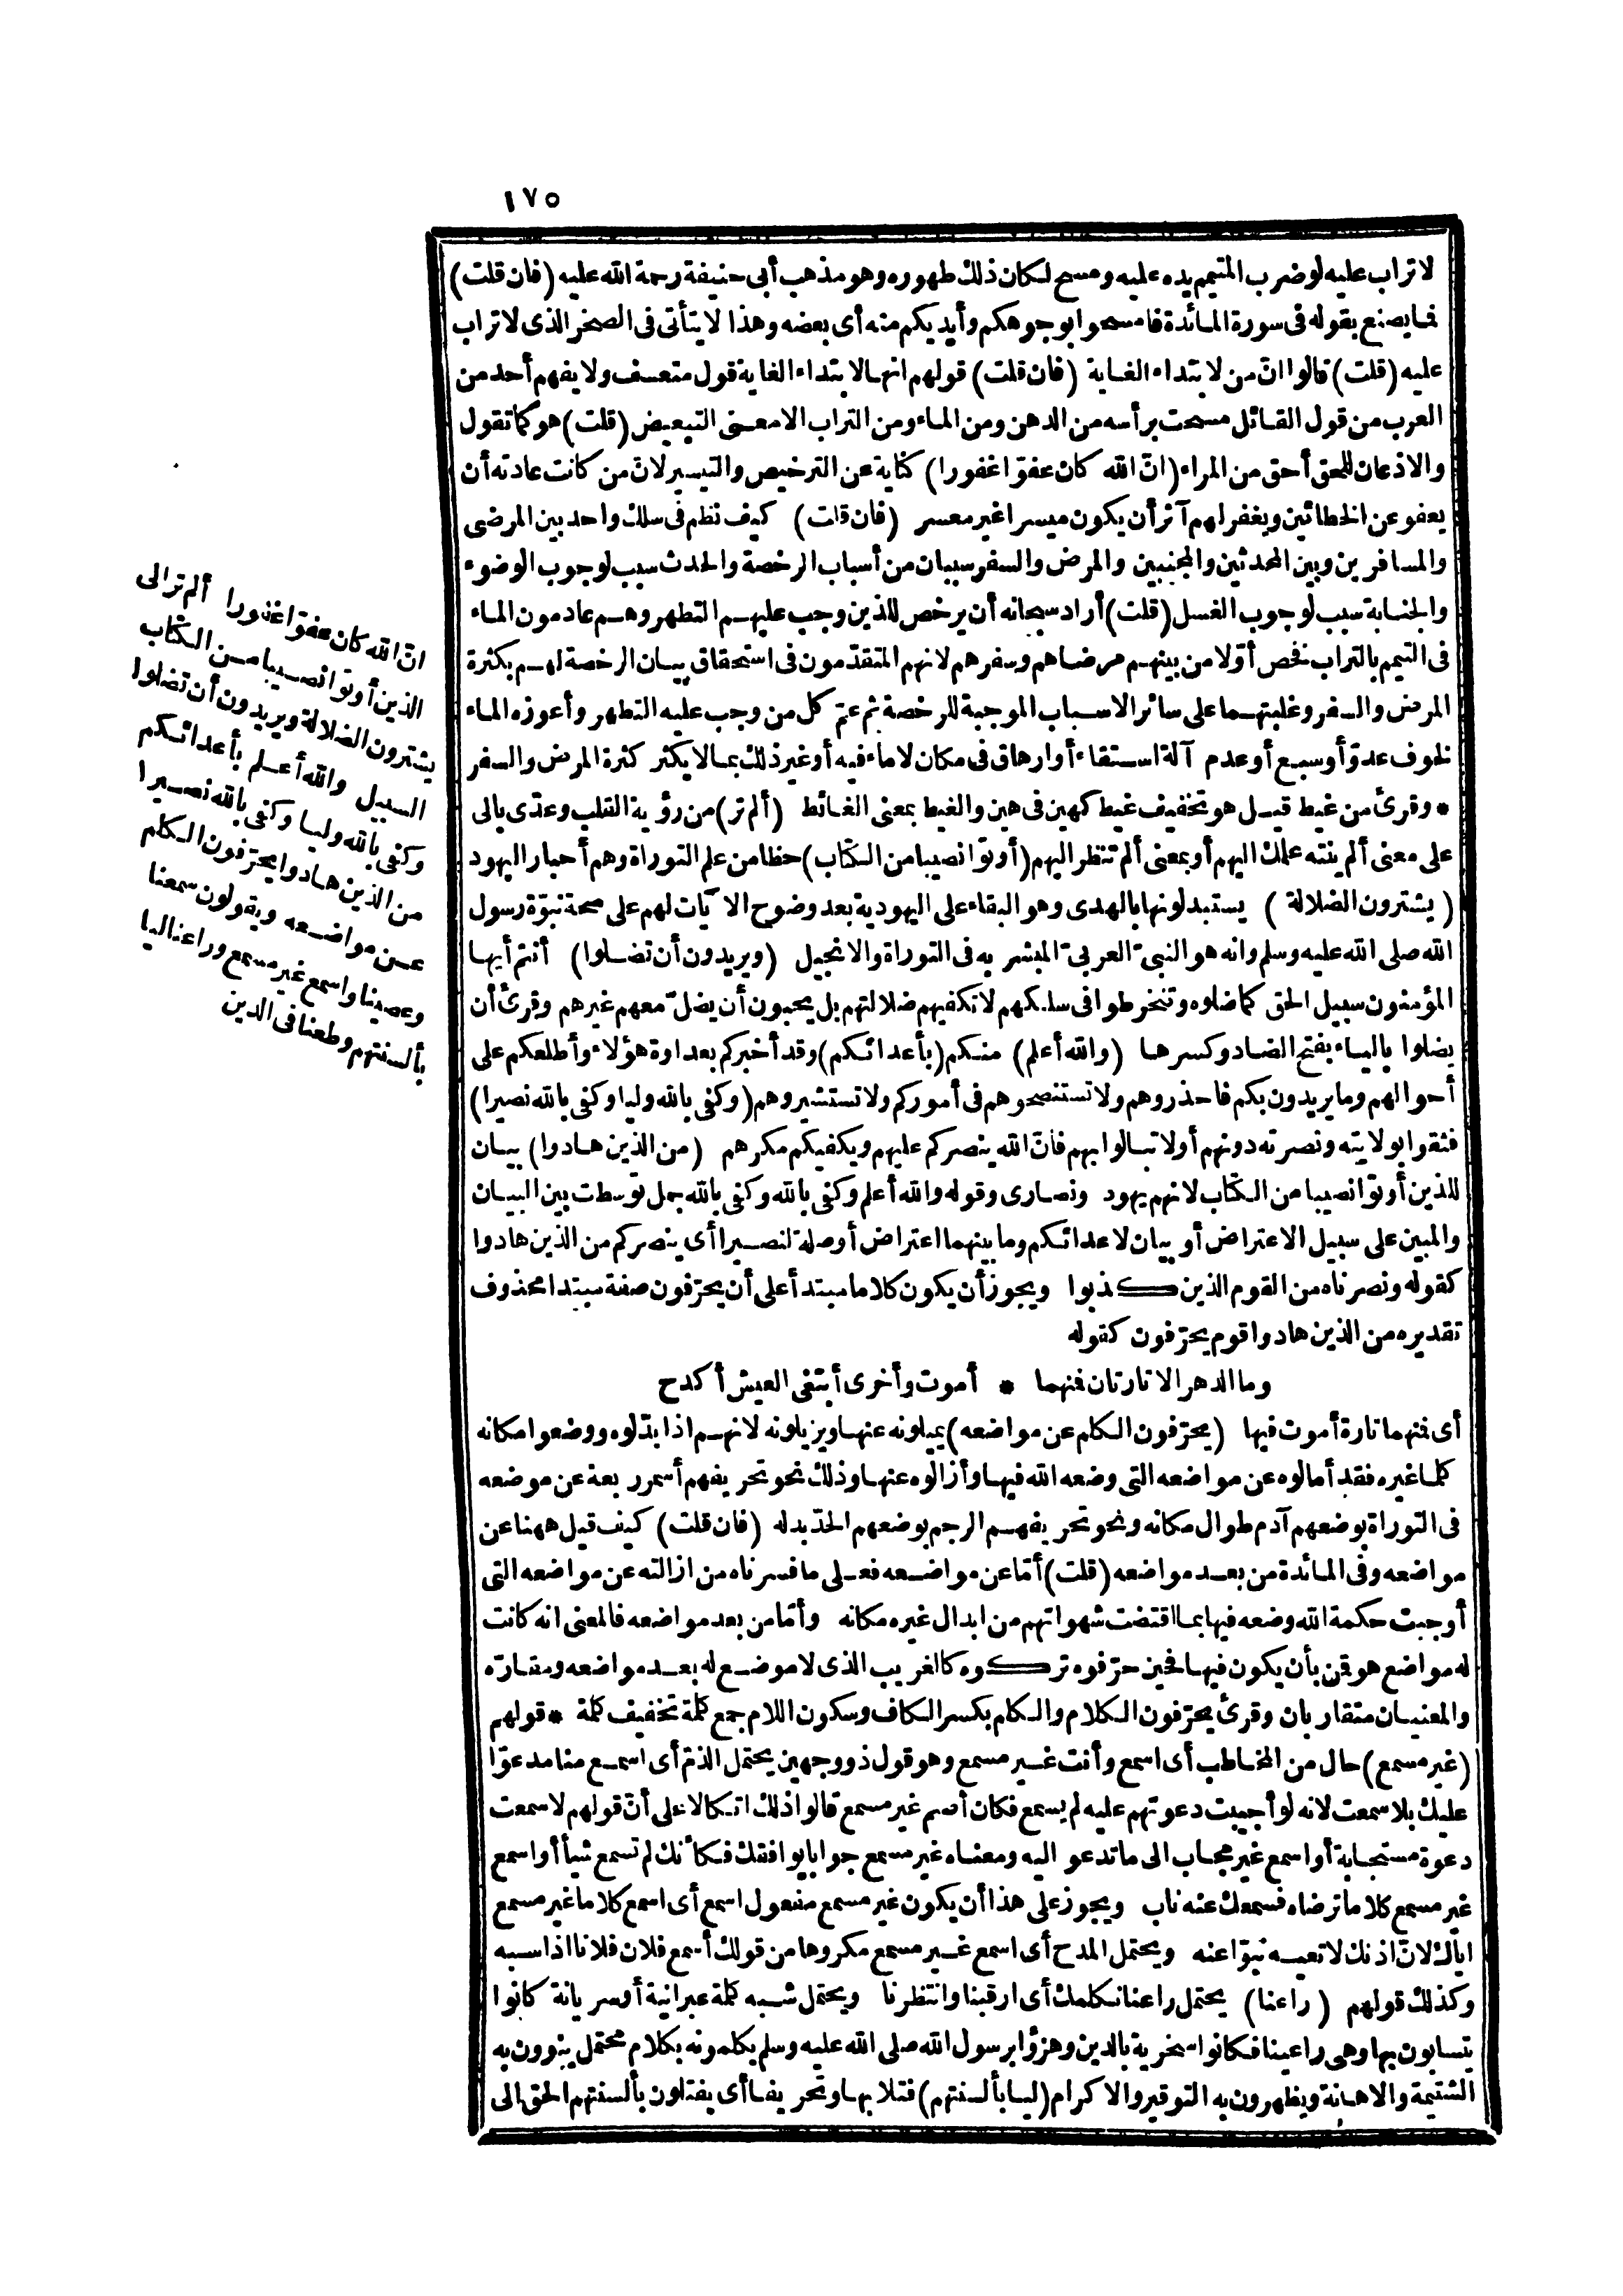 ١٧٥
لا تراب عليه لو ضرب المتيمم يده عليه ومسح لكان ذلك طهوره وهو مذهب أبى حنيفة رحمة الله عليه (فان قلت)
فما يصنع بقوله فى سورة المائدة فامسحوا بوجوهكم وأيديكم منه أى بعضه وهذا لا يتأتى فى الصخر الذى لا تراب
عليه (قلت) قالوا انّ من لابتداء الغاية (فان قلت) قولهم انها لابتداء الغاية قول متعسف ولا يفهم أحد من
العرب من قول القائل مسحت برأسه من الدهن ومن الماء ومن التراب الا معنى التبعيض (قلت) هو كما تقول
والاذعان للحق أحق من المراء (انّ الله كان عفوّا غفورا) كناية عن الترخيص والتيسير لانّ من كانت عادته أن
يعفو عن الخطائين ويغفر لهم آثر أن يكون ميسرا غير معسر (فان قلت) كيف نظم فى سلك واحد بين المرضى
والمسافرين وبين المحدثين والمجنبين والمرض والسفر سببان من أسباب الرخصة والحدث سبب لوجوب الوضوء
والجنابة سبب لوجوب الغسل (قلت) أراد سبحانه أن يرخص للذين وجب عليهم التطهر وهم عادمون الماء
فى التيمم بالتراب نخص أوّلا من بينهم مرضاهم وسفرهم لانهم المتقدّمون فى استحقاق بيان الرخصة لهم بكثرة
المرض والسفر وغلبتهما على سائر الاسباب الموجبة للرخصة ثم عمّ كل من وجب عليه التطهر وأعوزه الماء
لخوف عدوّ أو سبع أو عدم آلة استقاء أو ارهاق فى مكان لا ماء فيه أو غير ذلك مما لا يكثر كثرة المرض والسفر
* وقرئ من غيط قيل هو تخفيف غيط كهين فى هين والغيط بمعنى الغائط (ألم تر) من رؤية القلب وعدّى بالى
على معنى ألم ينته علمك اليهم أو بمعنى ألم تنظر اليهم (أوتوا نصيبا من الكتّاب) حظا من علم التوراة وهم أحبار اليهود
(يشترون الضلالة) يستبدلونها بالهدى وهو البقاء على اليهودية بعد وضوح الآيات لهم على صحة نبوّة رسول
الله صلى الله عليه وسلم وانه هو النبىّ العربىّ المبشر به فى التوراة والانجيل (ويريدون أن تضلوا) أنتم أيها
المؤمنون سبيل الحق كما ضلوه وتنخرطوا فى سلكهم لا تكفيهم ضلالتهم بل يحبون أن يضلّ معهم غيرهم وقرئ أن
يضلوا بالياء بفتح الضاد وكسرها (والله أعلم) منكم (بأعدائكم) وقد أخبركم بعداوة هؤلاء وأطلعكم على
أحوالهم وما يريدون بكم فاحذروهم ولا تستنصحوهم فى أموركم ولا تستشيروهم (وكفى بالله وليا وكفى بالله نصيرا)
فثقوا بولايته ونصرته دونهم أو لا تبالوا بهم فانّ الله ينصركم عليهم ويكفيكم مكرهم (من الذين هادوا) بيان
للذين أوتوا نصيبا من الكتاب لانهم يهود ونصارى وقوله والله أعلم وكفى بالله وكفى بالله جمل توسطت بين البيان
والمبين على سبيل الاعتراض أو بيان لاعدائكم وما بينهما اعتراض أو صلة لنصيرا أى ينصركم من الذين هادوا
كقوله ونصرناه من القوم الذين كذبوا ويجوز أن يكون كلاما مبتدأ على أن يحرّفون صفة مبتدا محذوف
تقديره من الذين هادوا قوم يحرّفون كقوله
وما الدهر الا تارتان فمنهما * أموت وأخرى أبتغى العيش أكدح
أى فمنهما تارة أموت فيها (يحرّفون الكلم عن مواضعه) يميلونه عنها ويزيلونه لانهم اذا بدّلوه ووضعوا مكانه
كلما غيره فقد أمالوه عن مواضعه التى وضعه الله فيها وأزالوه عنها وذلك نحو تحريفهم أسمر ربعة عن موضعه
فى التوراة بوضعهم آدم طوال مكانه ونحو تحريفهم الرجم بوضعهم الحدّ بدله (فان قلت) كيف قيل ههنا عن
مواضعه وفى المائدة من بعد مواضعه (قلت) أمّا عن مواضعه فعلى ما فسرناه من ازالته عن مواضعه التى
أوجبت حكمة الله وضعه فيها بما اقتضت شهواتهم من ابدال غيره مكانه وأمّا من بعد مواضعه فالمعنى انه كانت
له مواضع هو قمن بأن يكون فيها فحين حرّفوه تركوه كالغريب الذى لا موضع له بعد مواضعه ومقارّه
والمعنيان متقاربان وقرئ يحرّفون الكلام والكلم بكسر الكاف وسكون اللام جمع كلمة تخفيف كلمة * قولهم
(غير مسمع) حال من المخاطب أى اسمع وأنت غير مسمع وهو قول ذو وجهين يحتمل الذمّ أى اسمع منا مدعوّا
عليك بلا سمعت لانه لو أجيبت دعوتهم عليه لم يسمع فكان أصم غير مسمع قالوا ذلك اتكالا على أنّ قولهم لا سمعت
دعوة مستجابة أو اسمع غير مجاب الى ما تدعو اليه ومعناه غير مسمع جوابا يوافقك فكأنك لم تسمع شيأ أو اسمع
غير مسمع كلاما ترضاه فسمعك عنه ناب ويجوز على هذا أن يكون غير مسمع مفعول اسمع أى اسمع كلاما غير مسمع
اياك لانّ اذنك لا تعيه نبوّا عنه ويحتمل المدح أى اسمع غير مسمع مكروها من قولك أسمع فلان فلانا اذا سبه
وكذلك قولهم (راعنا) يحتمل راعنا نكلمك أى ارقبنا وانتظرنا ويحتمل شبه كلمة عبرانية أو سريانة كانوا
يتسابون بها وهى راعينا فكانوا سخرية بالدين وهزؤا برسول الله صلى الله عليه وسلم يكلمونه بكلام محتمل ينوون به
الشتيمة والاهانة ويظهرون به التوقير والاكرام (ليا بألسنتهم) فتلا بها وتحريفا أى يفتلون بألسنتهم الحق الى
انّ الله كان عفوّا غفورا ألم تر الى
الذين أوتوا نصيبا من الكتاب
يشترون الضلالة ويريدون أن تضلوا
السبيل والله أعلم بأعدائكم
وكفى بالله وليا وكفى بالله نصيرا
من الذين هادوا يحرّفون الكلم
عن مواضعه ويقولون سمعنا
وعصينا واسمع غير مسمع وراعنا ليا
بألسنتهم وطعنا فى الدين